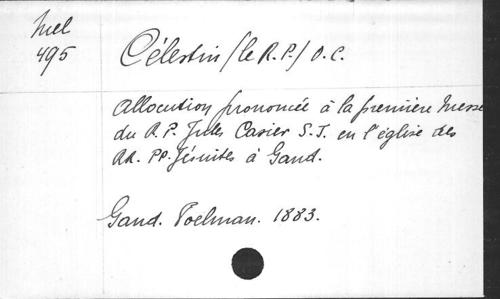 Mel
495
Célestin (le R.P.) O.C.
Allocution prononcée à la première Messe
du R.P. Jules Casier S.J. en l'église des
RR. PP. Jésuites à Gand.
Gand. Poelman. 1883.